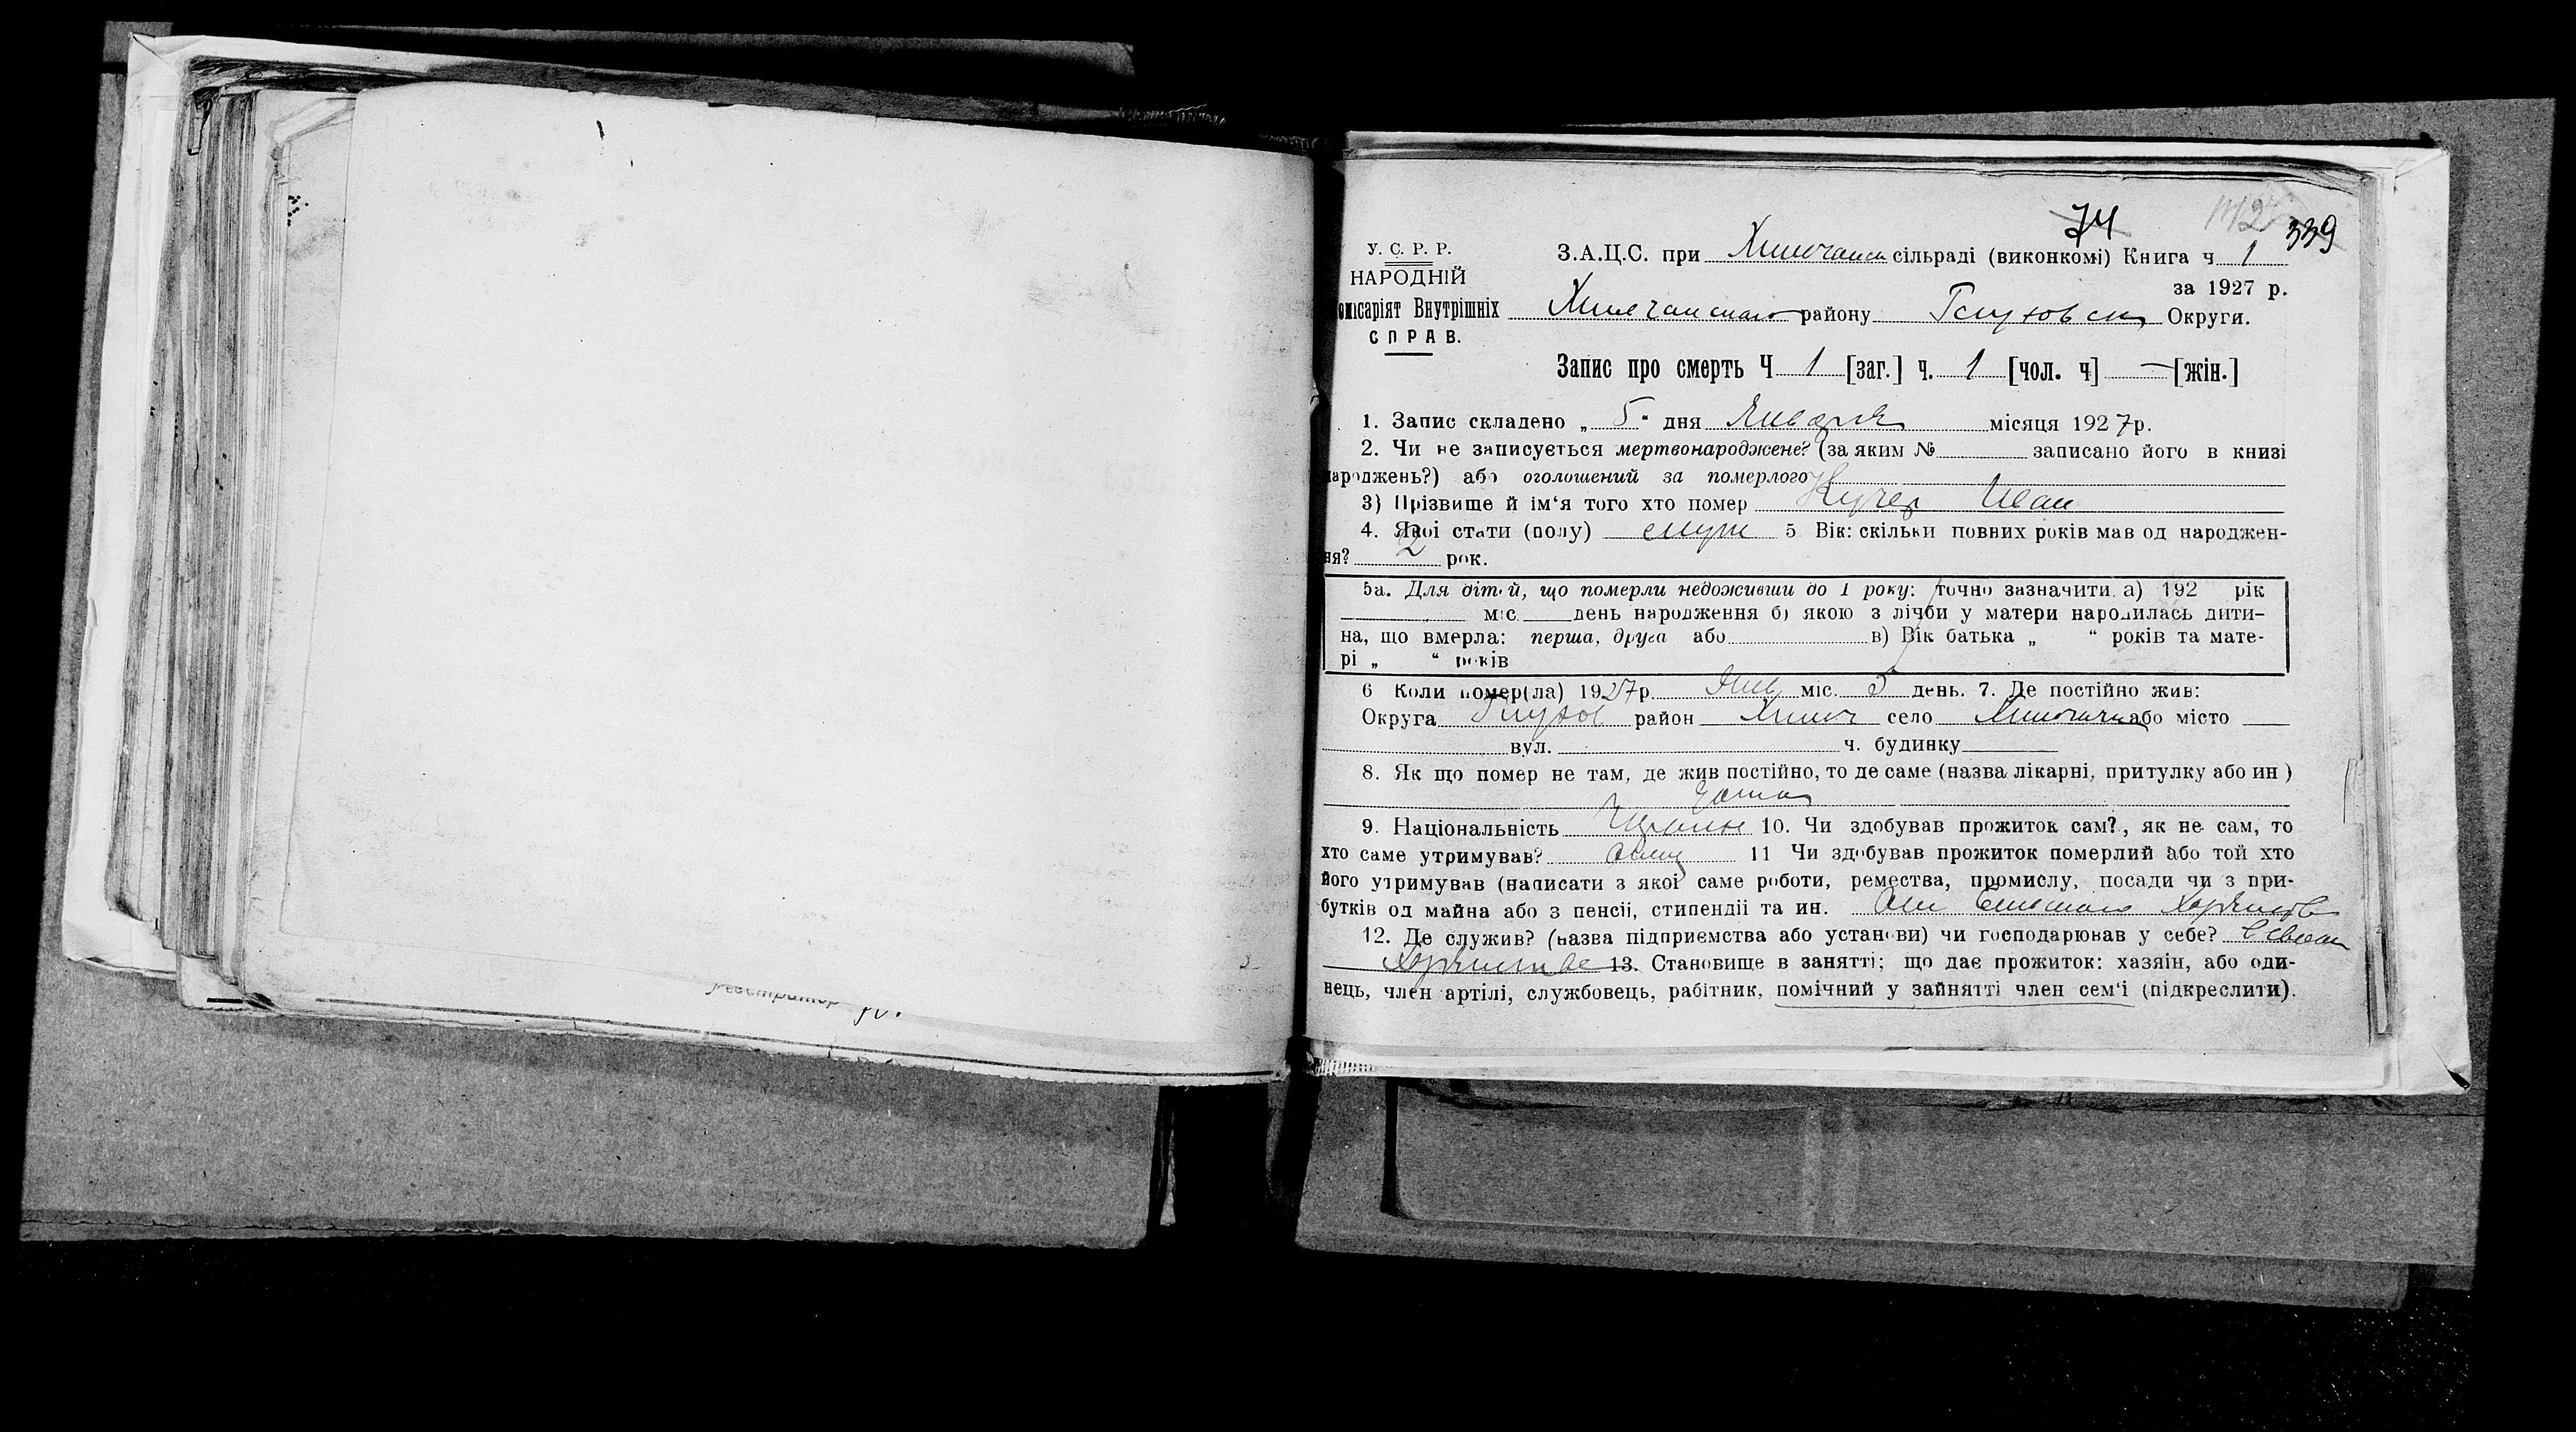 74 142 339
У. С. Р. Р.
НАРОДНІЙ
омісаріят Внутрішніх
СПРАВ.
З.А.Ц.С. при сільраді (виконкомі) Книга ч 1
за 1927 р.
району Глуховск Округи.
Запис про смерть Ч 1 [заг.] ч. 1 [чол. ч] — [жін.]
1. Запис складено „ 5 “ дня Января місяця 1927 р.
2. Чи не записується мертвонароджене? (за яким № записано його в книзі
народжень?) або оголошений за померлого
3) Прізвище й ім‘я того хто помер Кучер Иван
4. Якої стати (полу) муж 5 Вік: скільки повних років мав од народжен-
ня? 2 рок.
5а. Для дітей, що померли недоживши до 1 року: точно зазначити а) 192 рік
міс. день народження б) якою з лічби у матери народилась дити-
на, що вмерла: перша, друга або в) Вік батька „ “ років та мате-
рі „ “ років
6 Коли помер(ла) 1927 р. Янв міс. 5 день. 7. Де постійно жив:
Округа Глухов район село або місто
вул. ч. будинку
8. Як що помер не там, де жив постійно, то де саме (назва лікарні, притулку або ин )
9. Національність 10. Чи здобував прожиток сам?, як не сам, то
хто саме утримував? 11 Чи здобував прожиток померлий або той хто
його утримував (написати з якої саме роботи, ремества, промислу, посади чи з при-
бутків од майна або з пенсії, стипендії та ин.
12. Де служив? (назва підприємства або установи) чи господарював у себе?
13. Становище в занятті; що дає прожиток: хазяін, або оди-
нець, член артілі, службовець, рабітник, помічний у зайнятті член сем‘ї (підкреслити).